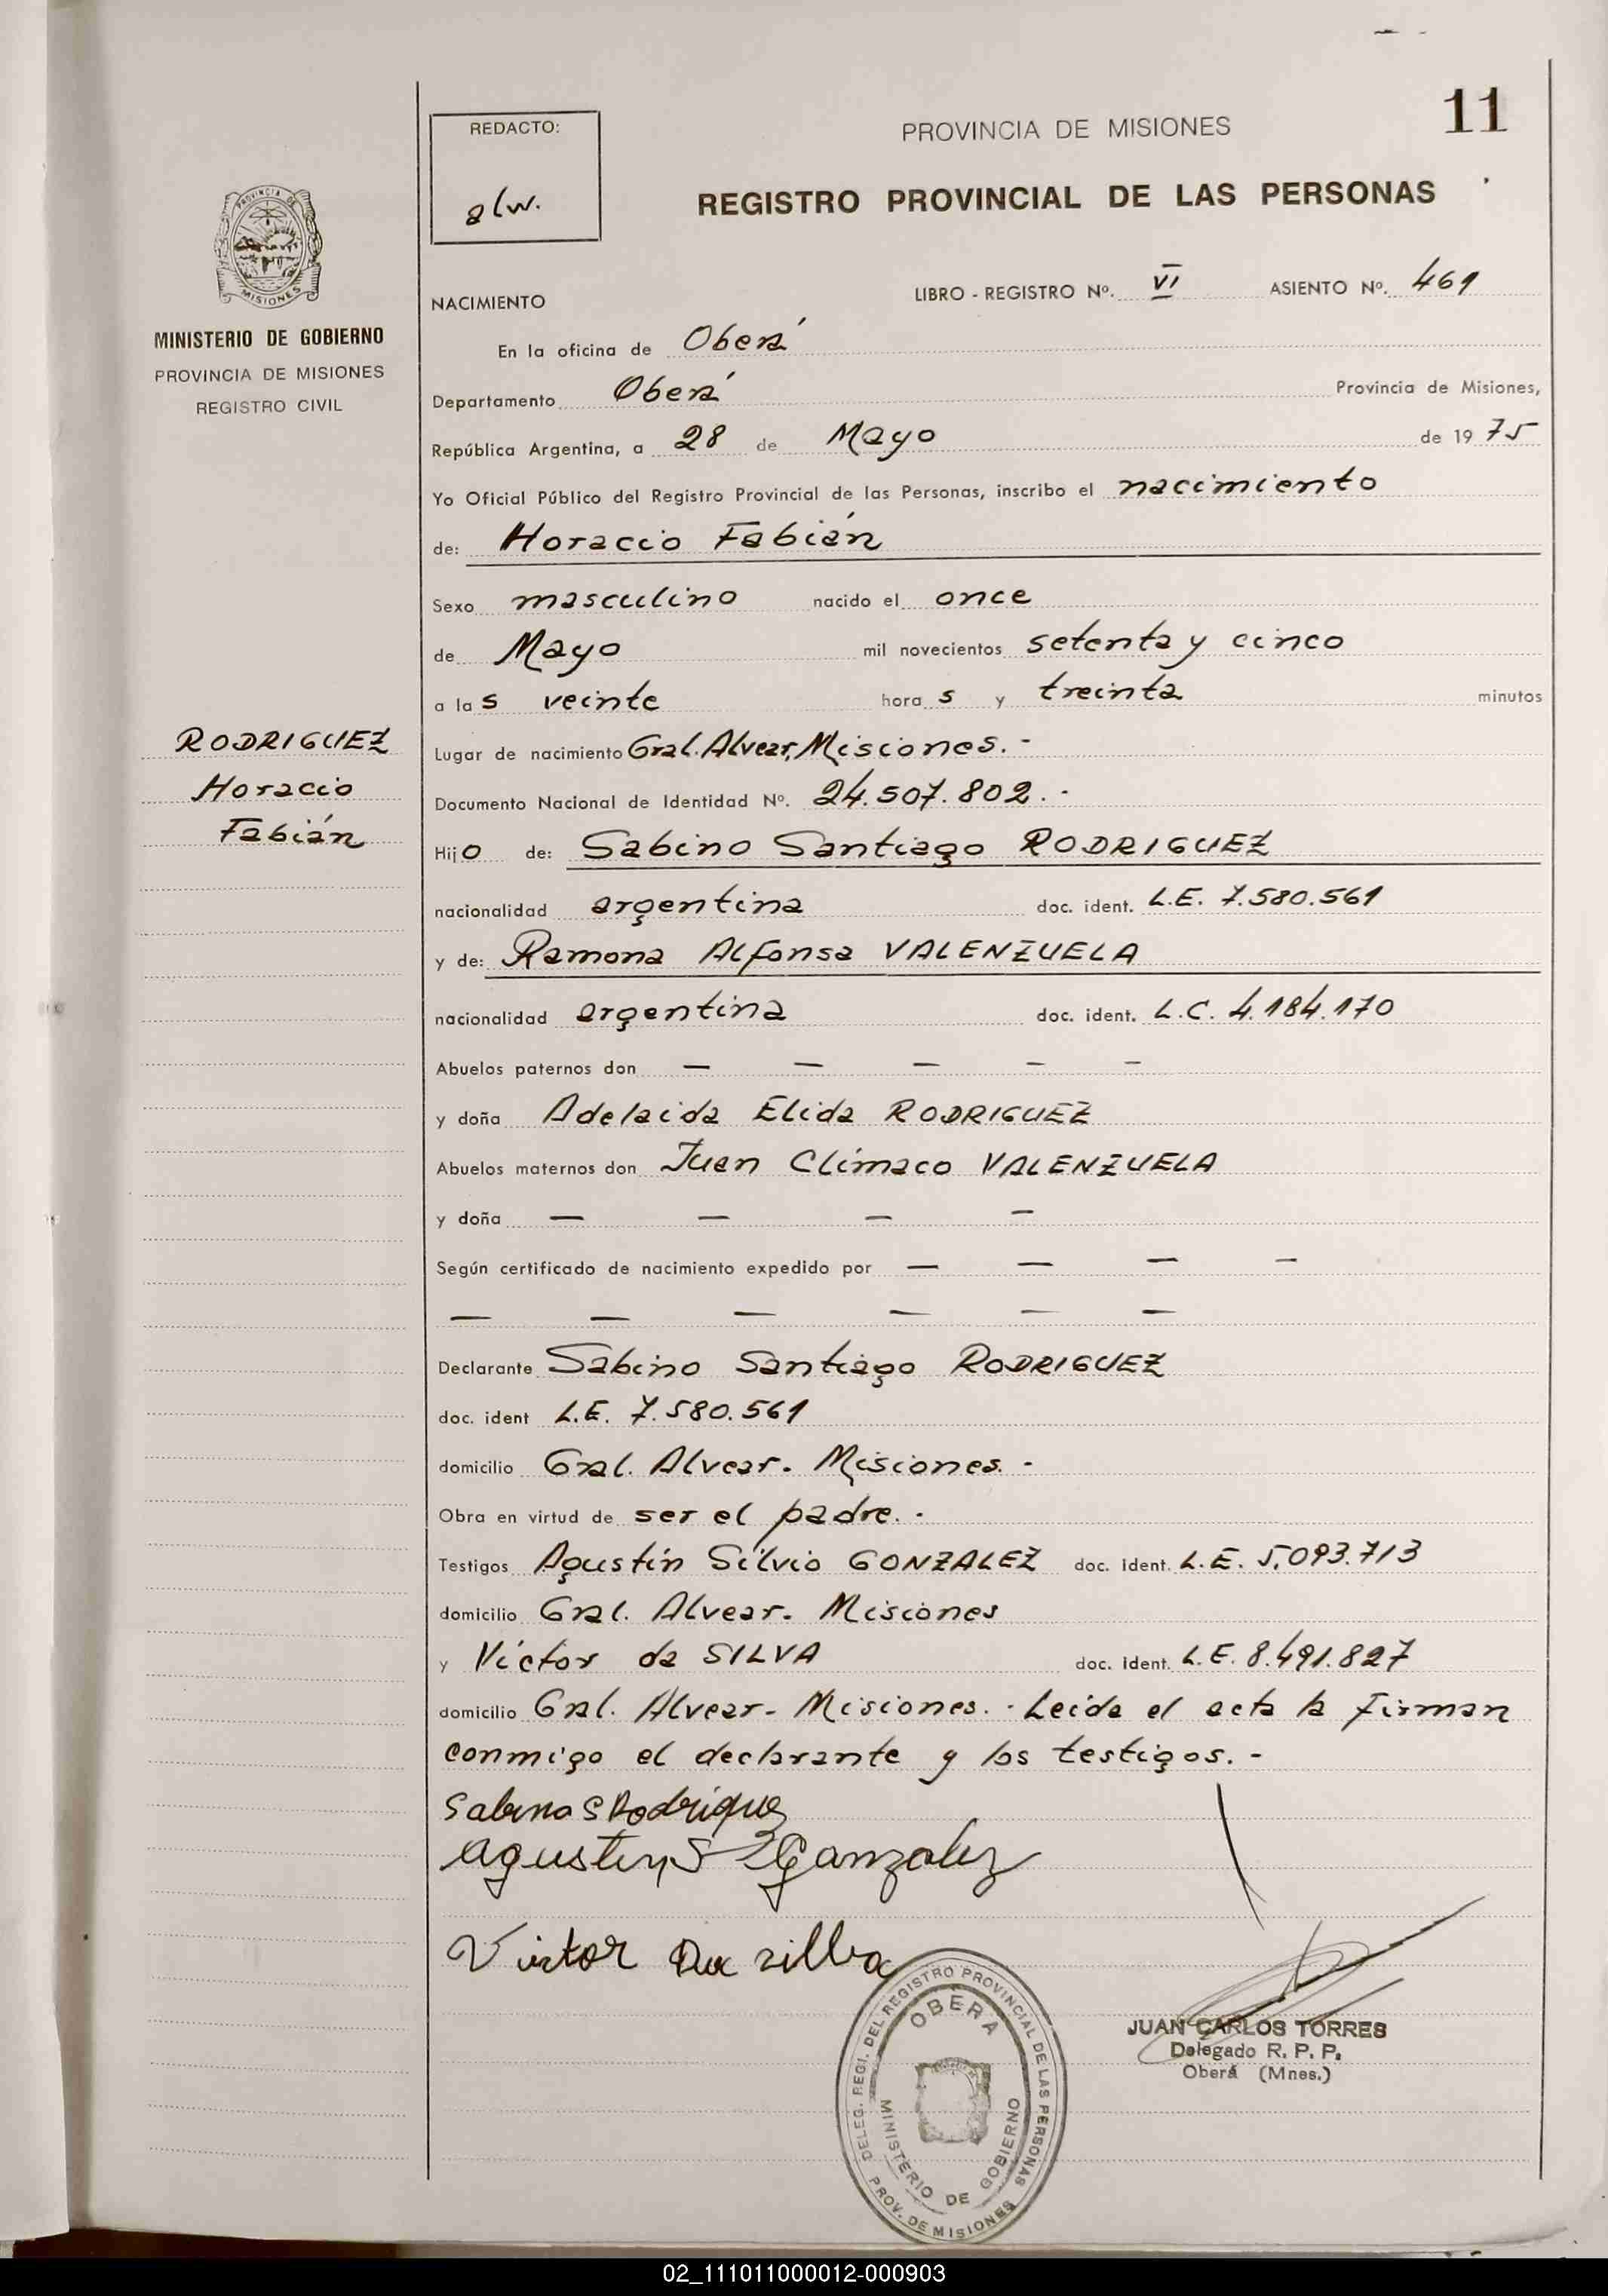 11
REDACTO:
alw.
PROVINCIA DE MISIONES
REGISTRO PROVINCIAL DE LAS PERSONAS
PROVINCIA DE
MISIONES
MINISTERIO DE GOBIERNO
PROVINCIA DE MISIONES
REGISTRO CIVIL
NACIMIENTO LIBRO - REGISTRO Nº. VI ASIENTO Nº. 461
En la oficina de Oberá
Departamento Oberá Provincia de Misiones,
República Argentina, a 28 de Mayo de 1975
Yo Oficial Público del Registro Provincial de las Personas, inscribo el nacimiento
de: Horacio Fabián
Sexo masculino nacido el once
de Mayo mil novecientos setenta y cinco
a las veinte horas y treinta minutos
RODRIGUEZ
Horacio
Fabián
Lugar de nacimiento Gral. Alvear, Misiones.-
Documento Nacional de Identidad Nº. 24.507.802.-
Hijo de: Sabino Santiago RODRIGUEZ
nacionalidad argentina doc. ident. L.E. 7.580.561
y de: Ramona Alfonsa VALENZUELA
nacionalidad argentina doc. ident. L.C. 4.184.170
Abuelos paternos don — — — — —
y doña Adelaida Elida RODRIGUEZ
Abuelos maternos don Juan Clímaco VALENZUELA
y doña — — — —
Según certificado de nacimiento expedido por — — — —
— — — — — —
Declarante Sabino Santiago RODRIGUEZ
doc. ident L.E. 7.580.561
domicilio Gral. Alvear. Misiones.-
Obra en virtud de ser el padre.-
Testigos Agustín Silvio GONZALEZ doc. ident. L.E. 5.093.713
domicilio Gral. Alvear. Misiones
y Víctor da SILVA doc. ident. L.E. 8.491.827
domicilio Gral. Alvear- Misiones.- Leída el acta la firman
conmigo el declarante y los testigos.-
Sabino S Rodriguez
Agustin S Gonzalez
Victor Da silba
DELEG. REGI. DEL REGISTRO PROVINCIAL DE LAS PERSONAS
OBERA
MINISTERIO DE GOBIERNO
PROV. DE MISIONES
JUAN CARLOS TORRES
Delegado R. P. P.
Oberá (Mnes.)
02_111011000012-000903